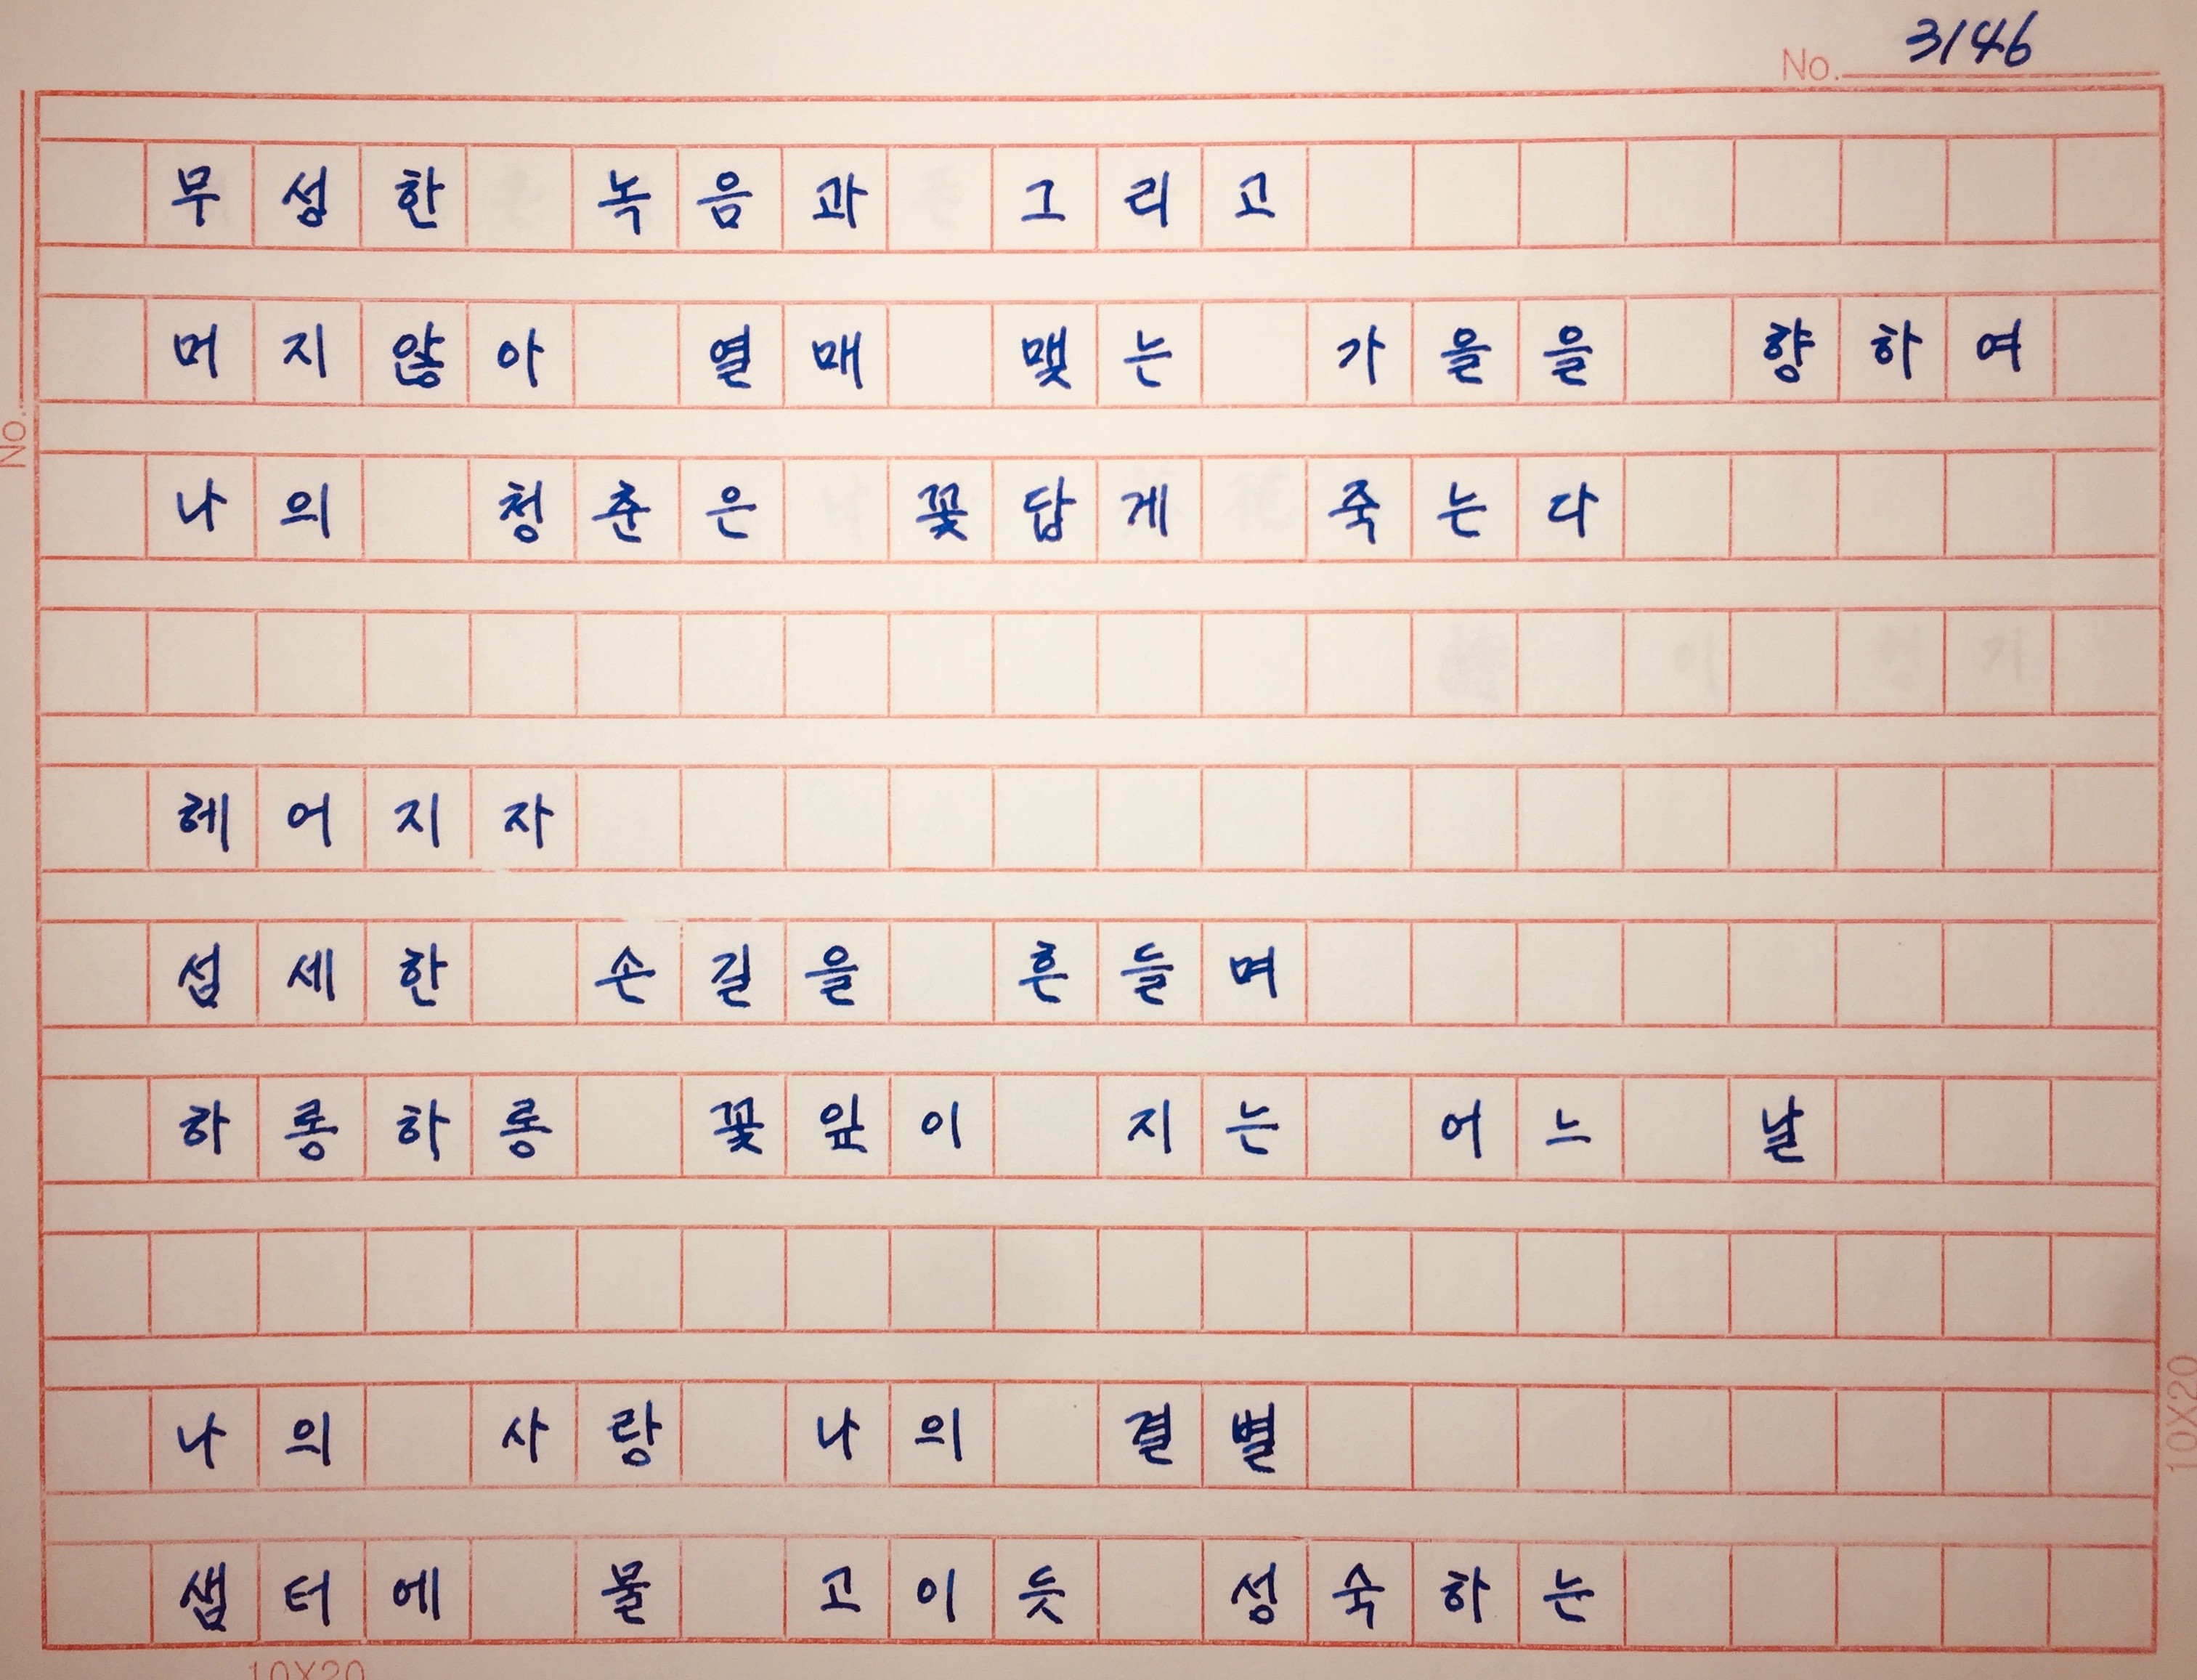 No. 3146
무성한 녹음과 그리고
머지않아 열매 맺는 가을을 향하여
No.
나의 청춘은 꽃답게 죽는다
헤어지자
섬세한 손길을 흔들며
하롱하롱 꽃잎이 지는 어느 날
나의 사랑 나의 결별
샘터에 물 고이듯 성숙하는
10X20
10X20